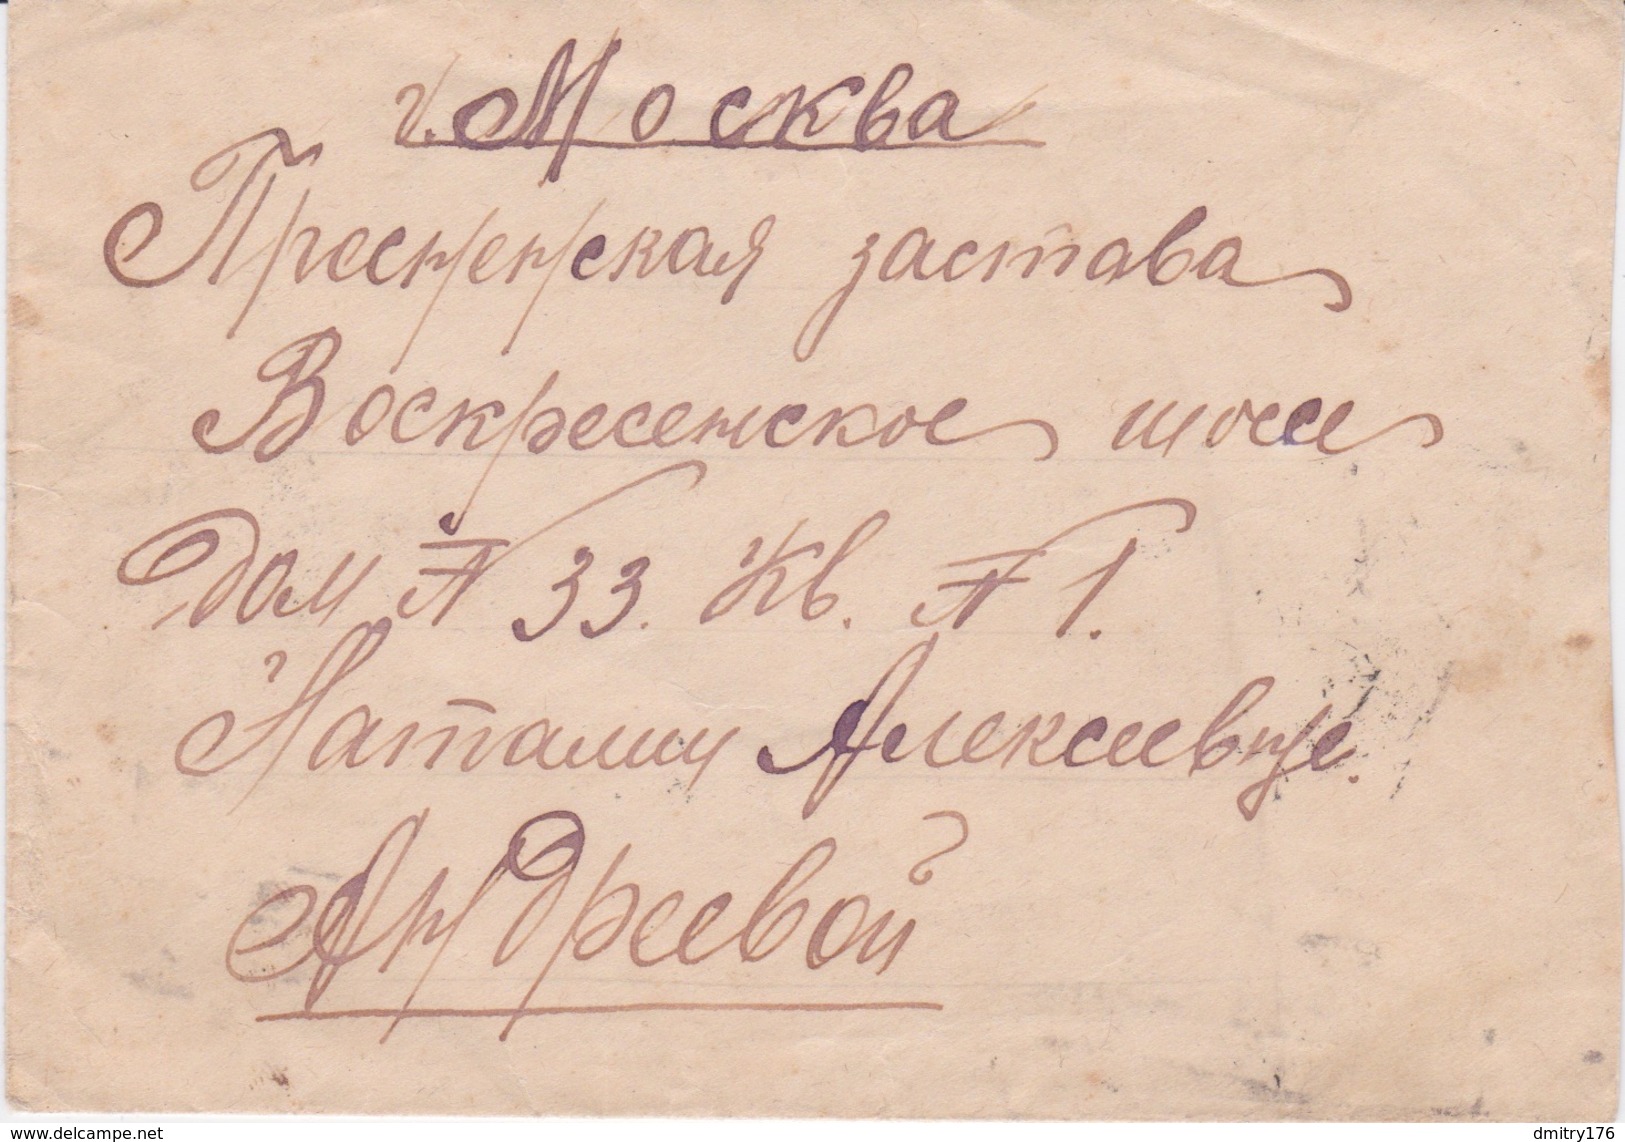 г. Москва
Пресненская застава
Воскресенское шоссе
дом № 33. кв. № 1.
Наталии Алексеевне.
Андреевой
www.delcampe.net
dmitry176